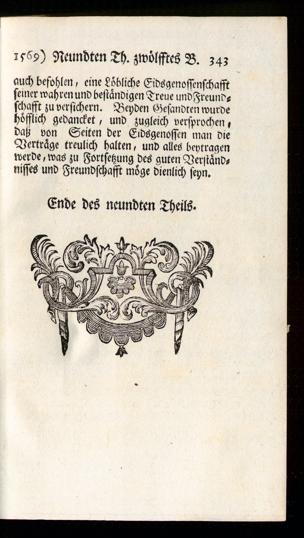 1569) Neundten Th. zwölfftes B. 343
auch befohlen, eine Löbliche Eidsgenossenschafft
seiner wahren und beständigen Treue und Freund-
schafft zu versichern. Beyden Gesandten wurde
höfflich gedancket, und zugleich versprochen,
daß von Seiten der Eidsgenossen man die
Verträge treulich halten, und alles beytragen
werde, was zu Fortsetzung des guten Verständ-
nisses und Freundschafft möge dienlich seyn.
Ende des neundten Theils.